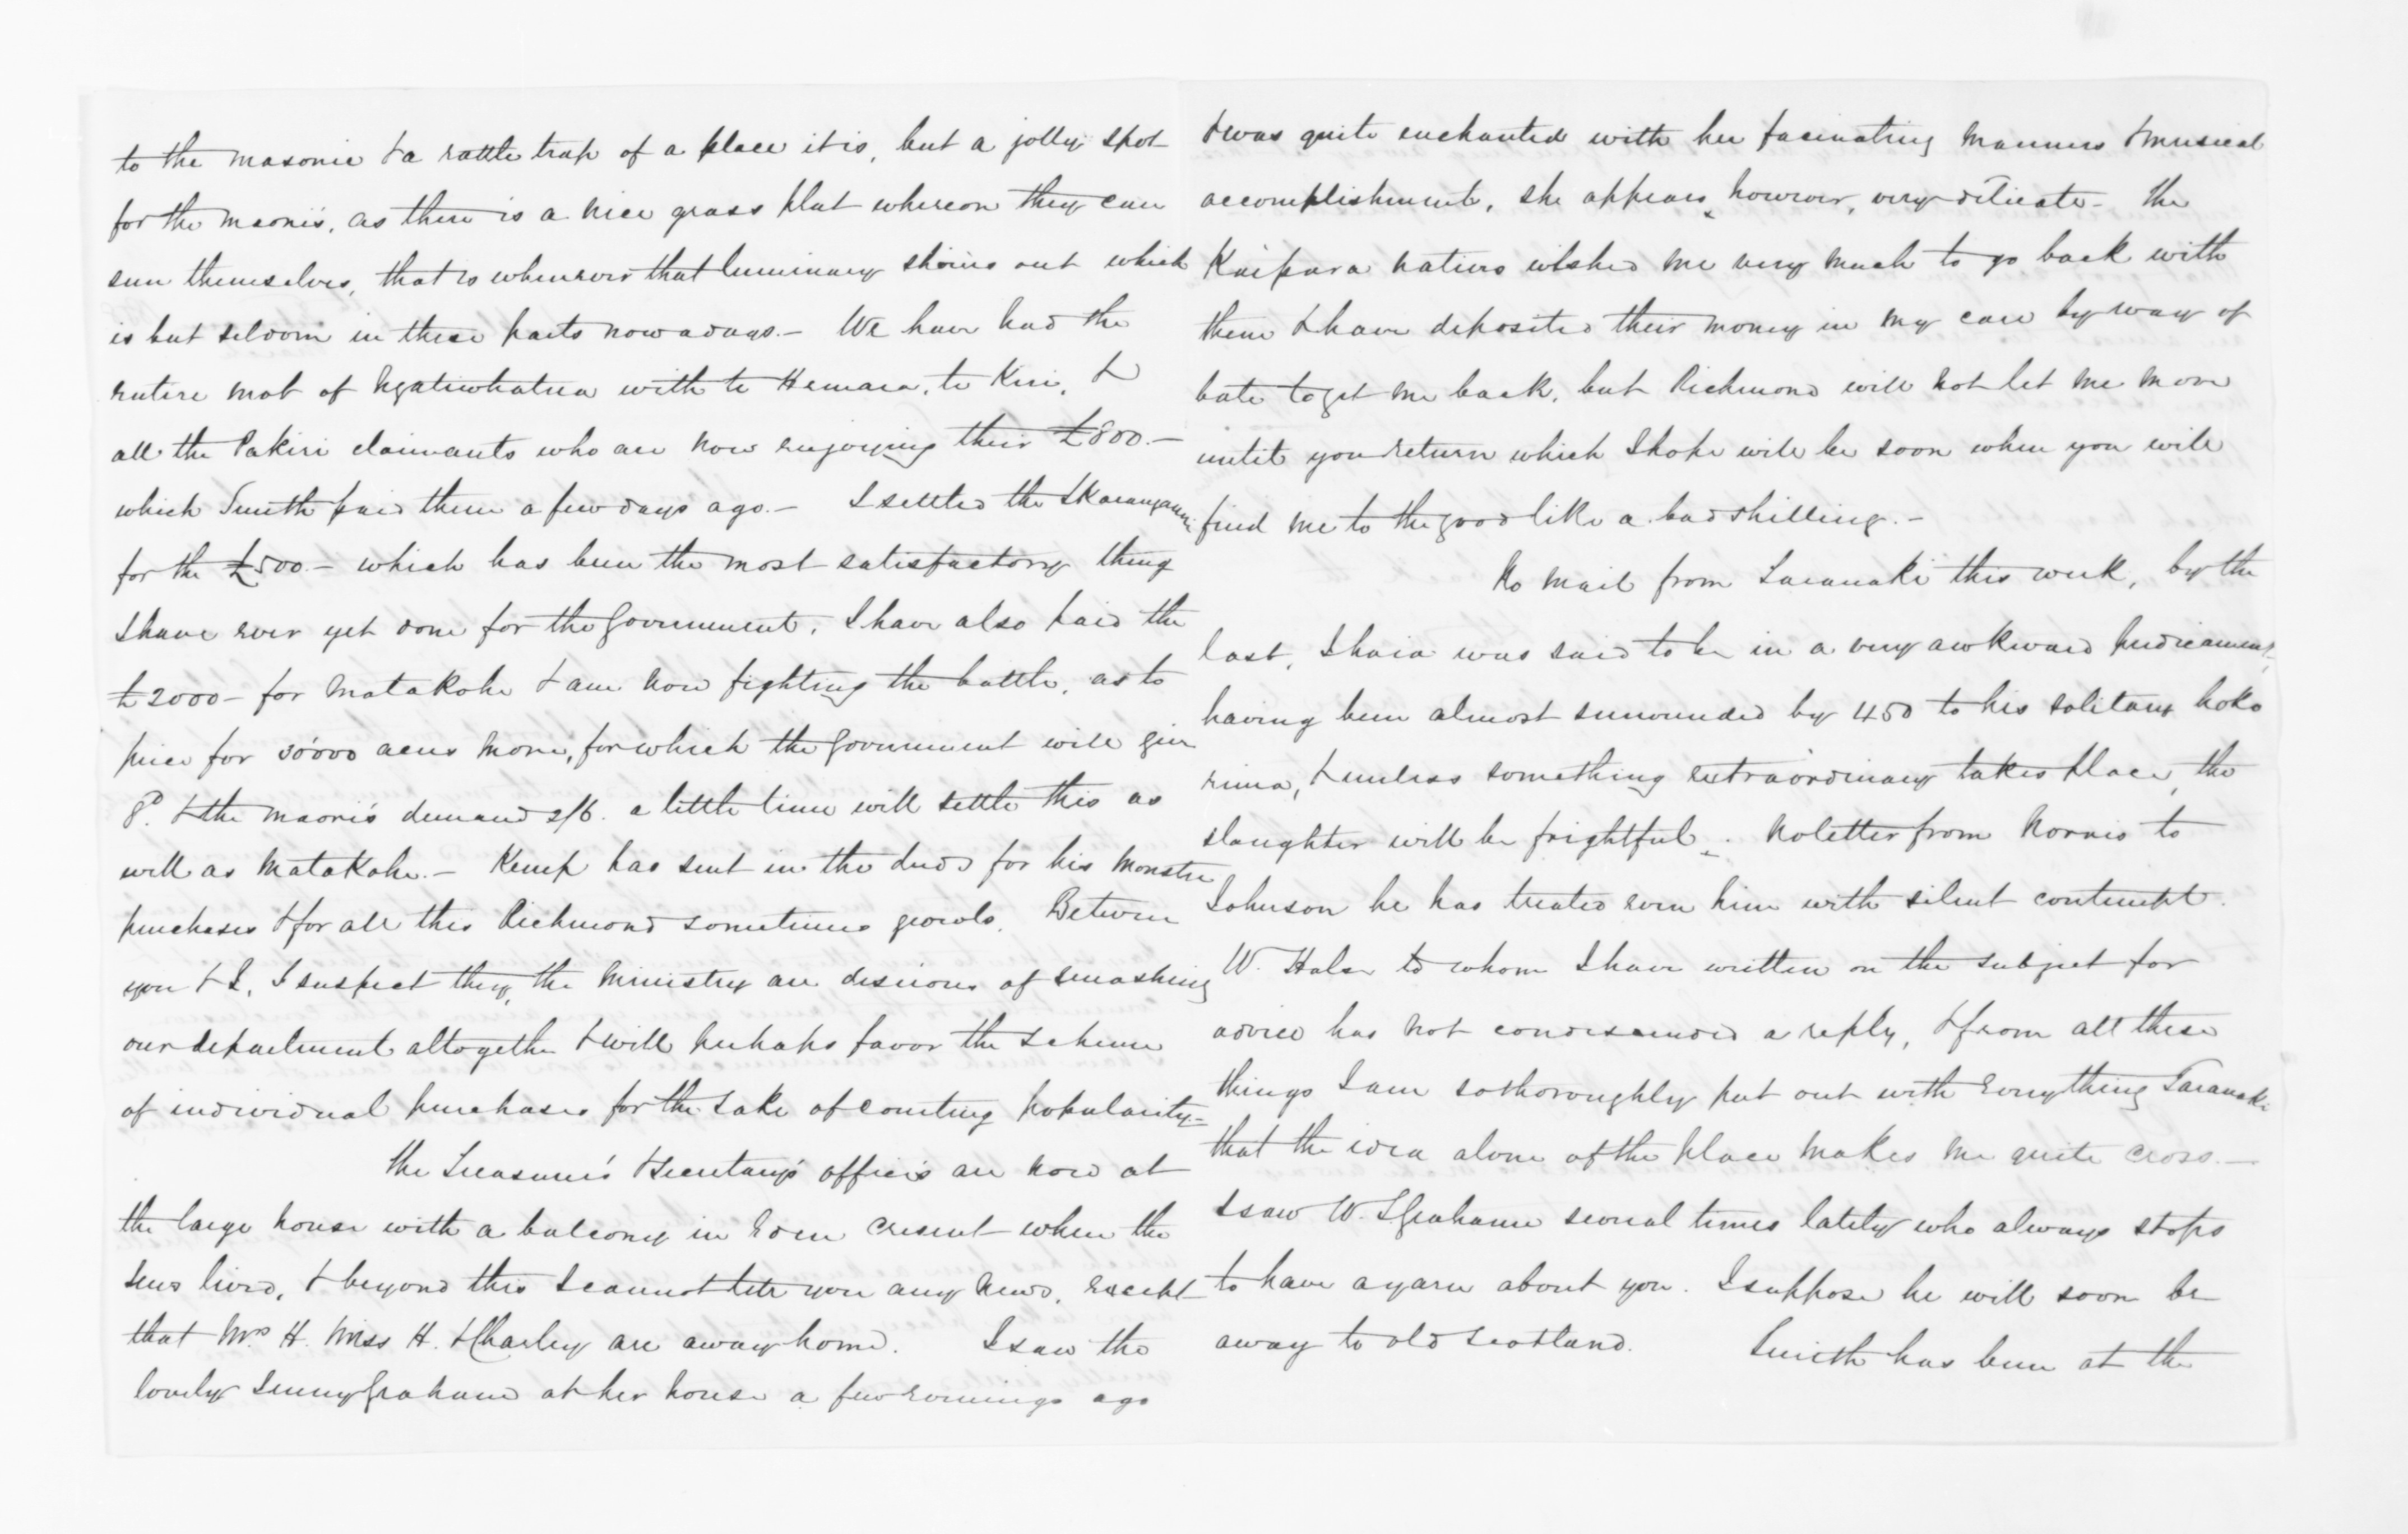 to the masonic & a rattle trap of a place it is, but a jolly spot
for the maori's, as there is a nice grass plat whereon they can
sun themselves, that is whenever that luminary shines out which
is but seldom in these parts now a days.- We have had the
entire mob of Ngatiwhatua with te Hemara, te Kiri, &
all the Pakiri claimants who are now enjoying their £800.-
which Smith paid them a few days ago.- I settled the Ikaranganui
for the £500.- which has been the most satisfactory thing
I have ever yet done for the Government, I have also paid the
£2000 - for Matakohe & am now fighting the battle, as to
price for 30'000 acres more, for which the Government will give
8d. & the maori's demand 2/6. a little time will settle this as
well as Matakohe.- Kemp has sent in the deeds for his monstre
purchases & for all this Richmond sometimes growls. Between
you & I, I suspect they, the Ministry are desirous of smashing
our department altogether & will perhaps favor the scheme
of individual purchases for the sake of courting popularity-
the Treasurer's & Secretary's office's are now at
the large house with a balcony in Eden Cresent where the
lived, & beyond this I cannot tell you any news, except
that Mrs H. Miss H. & Charley are away home. I saw the
lovely Jenny Graham at her house a few evenings ago
& was quite enchanted with her facinating manners & musical
accomplishments, she appears, however, very delicate- the
Kaipara natives wished me very much to go back with
them & have deposited their money in my care by way of
bate to get me back, but Richmond will not let me move
until you return which I hope will be soon when you will
find me to the good like a bad shilling.-
No mail from Taranaki this week, by the
last, Ihaia was said to be in a very awkward predicament,
having been almost surrounded by 450 to his solitary hoko
rima, & unless something extraordinary takes place, the
slaughter will be frightful. No letter from Norris to
Johnson he has treated even him with silent contempt.
W. Halse to whom I have written on the subject for
advice has not condescended a reply, & from all these
things I am so thoroughly put out with everything Taranaki
that the idea alone of the place makes me quite cross.-
I saw W. S Grahame several times lately who always stops
to have a yarn about you. I suppose he will soon be
away to old Scotland. Smith has been at the